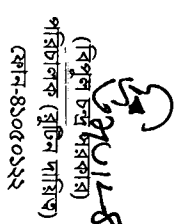 (বিপুল চন্দ্র সরকার)
পরিচালক (রুটিন দায়িত্ব)
ফোন-৪১০৫০১২২